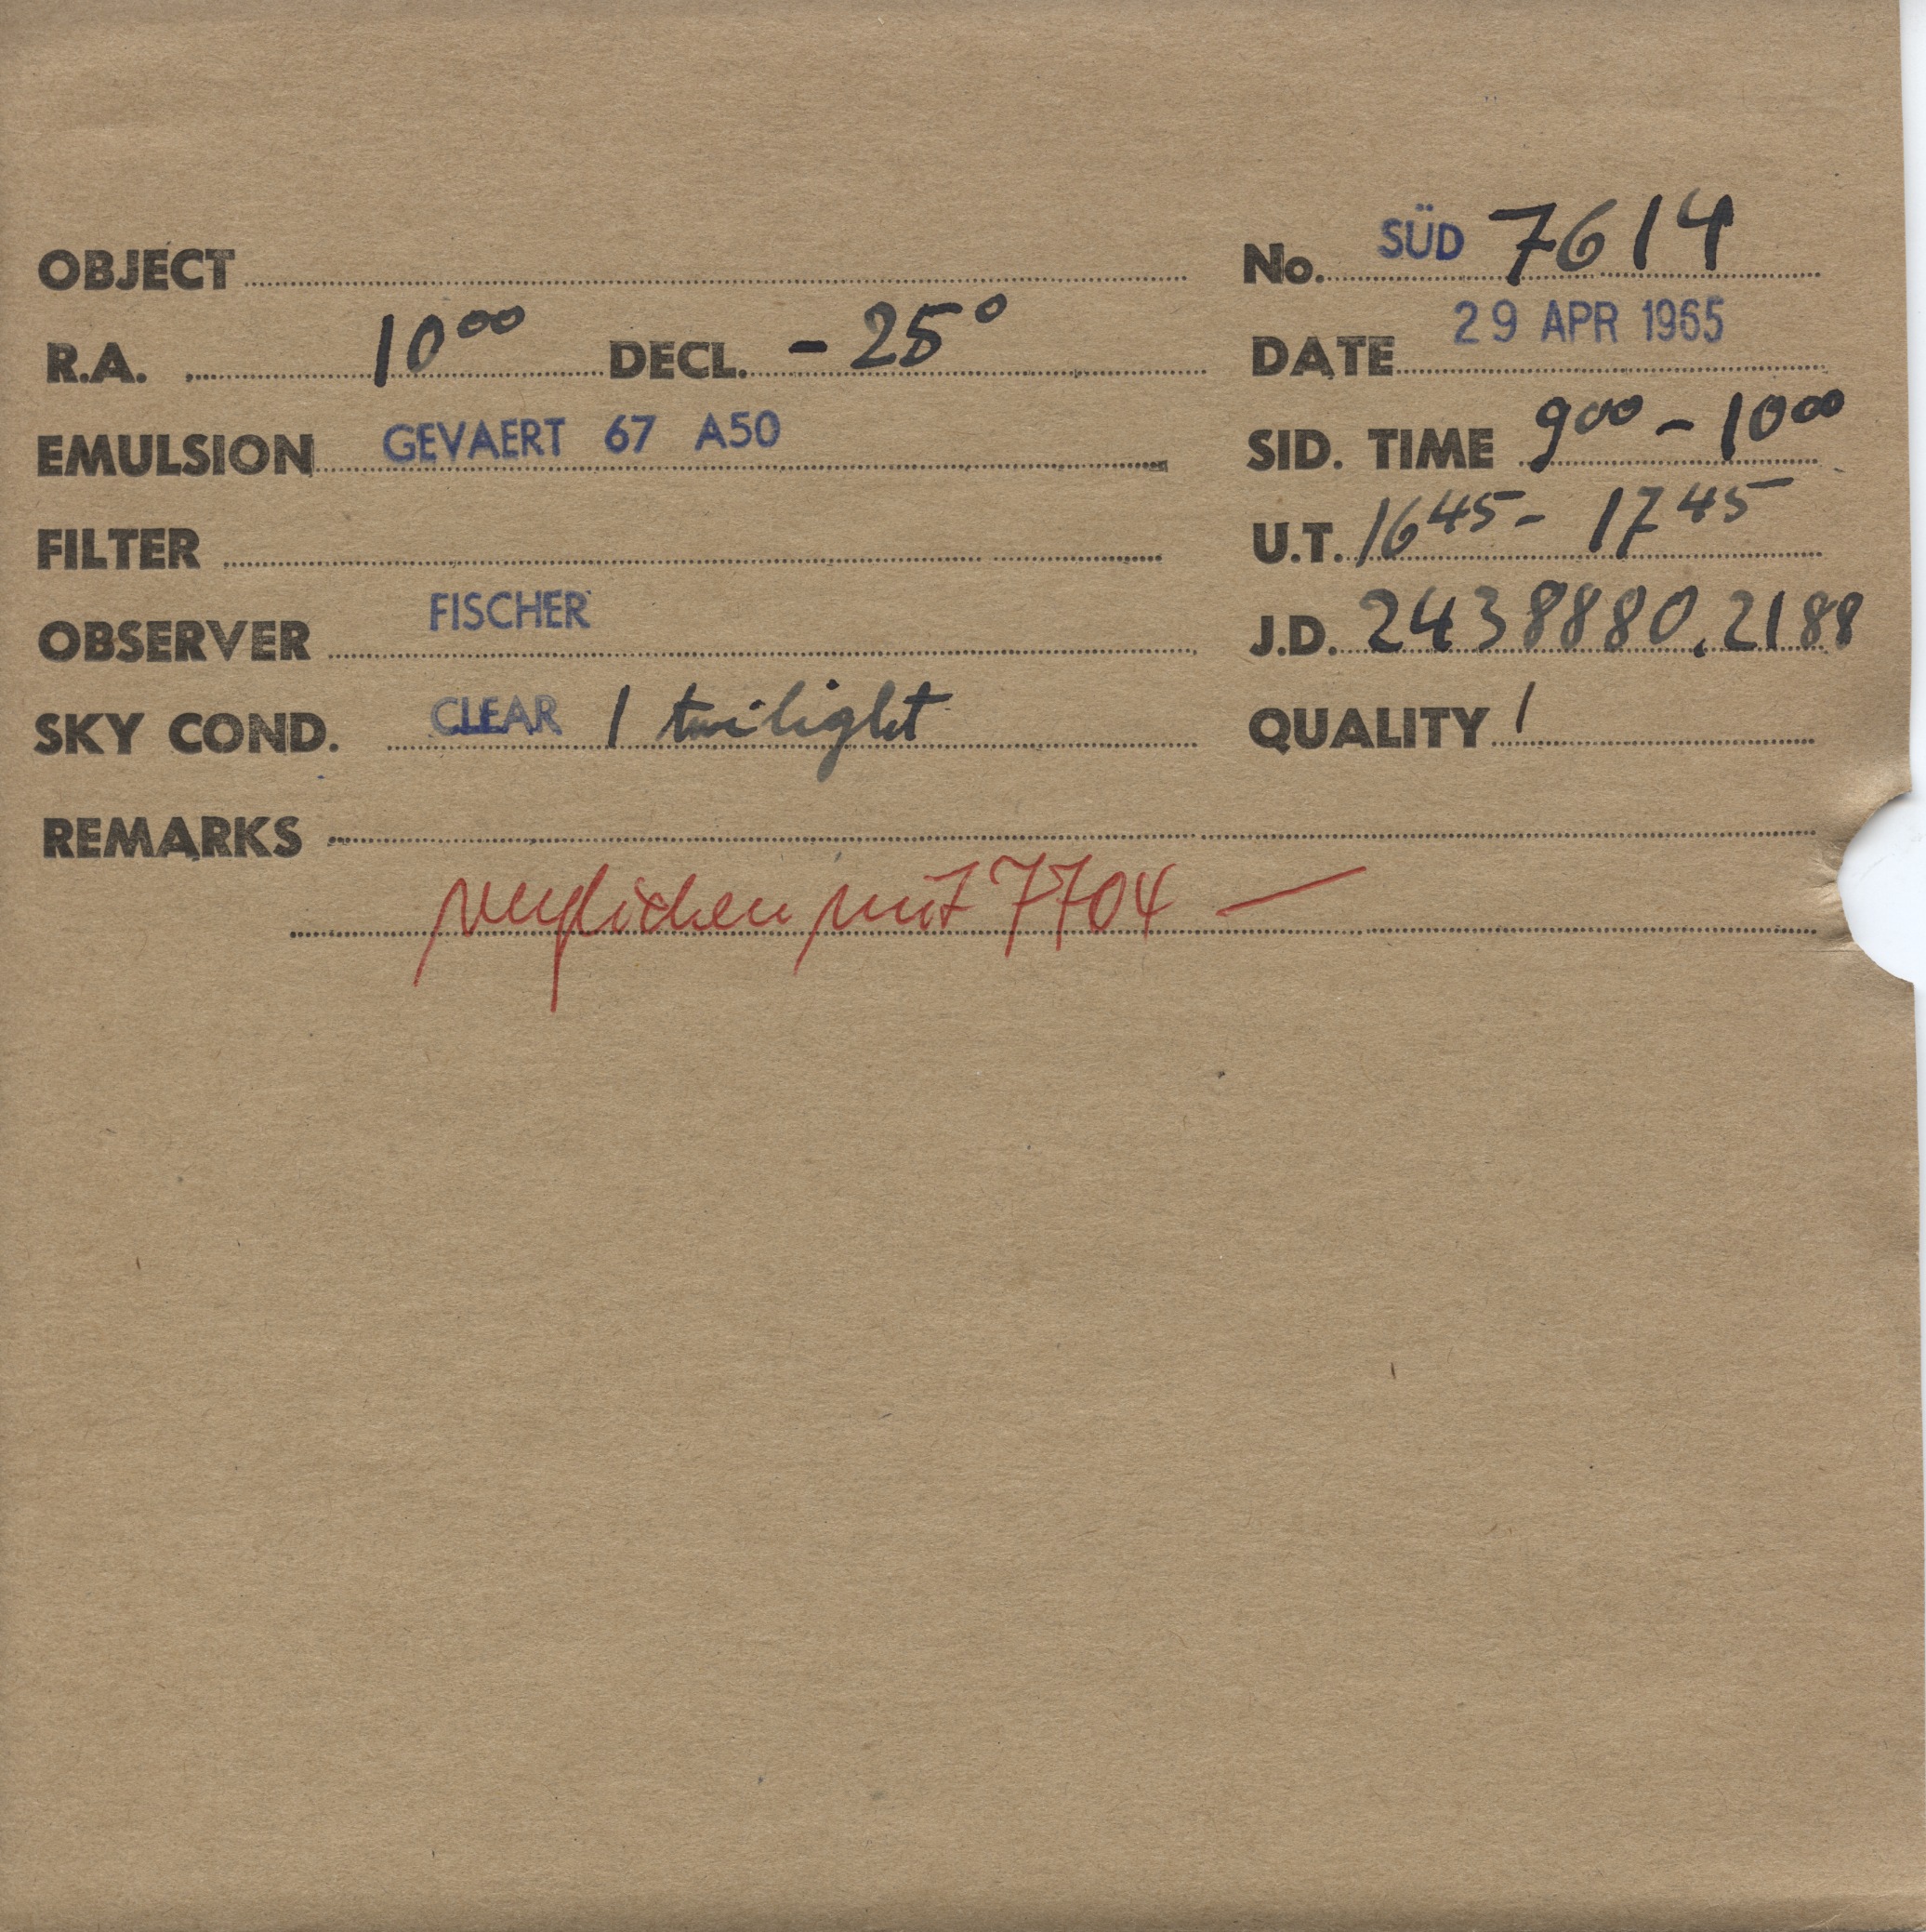 OBJECT No. SÜD 7614
R.A. 10⁰⁰ DECL. - 25° DATE 29 APR 1965
EMULSION GEVAERT 67 A50 SID. TIME 9⁰⁰ - 10⁰⁰
FILTER U.T. 16⁴⁵ - 17⁴⁵
OBSERVER FISCHER J.D. 2438880.2188
SKY COND. CLEAR 1 twilight QUALITY 1
REMARKS
verglichen mit 7704 —